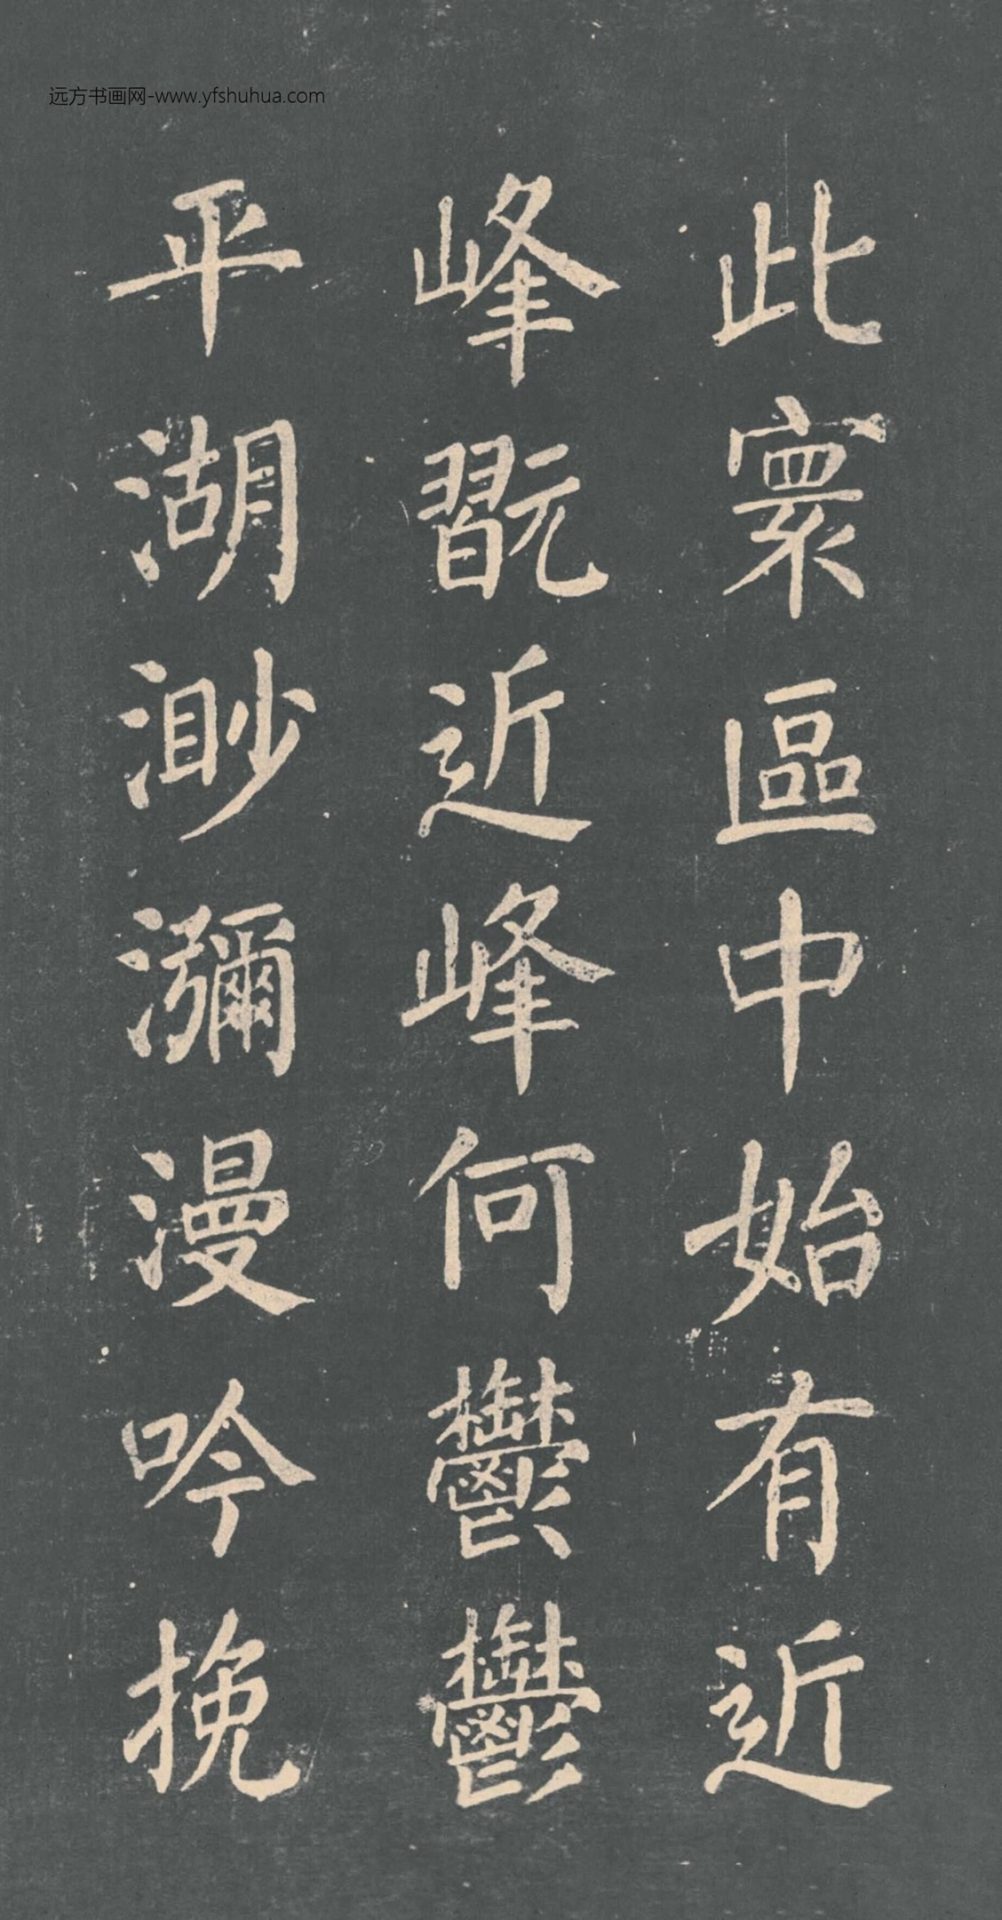 远方书画网-www.yfshuhua.com
此寰區中始有近
峰翫近峰何鬱鬱
平湖渺瀰漫吟挽